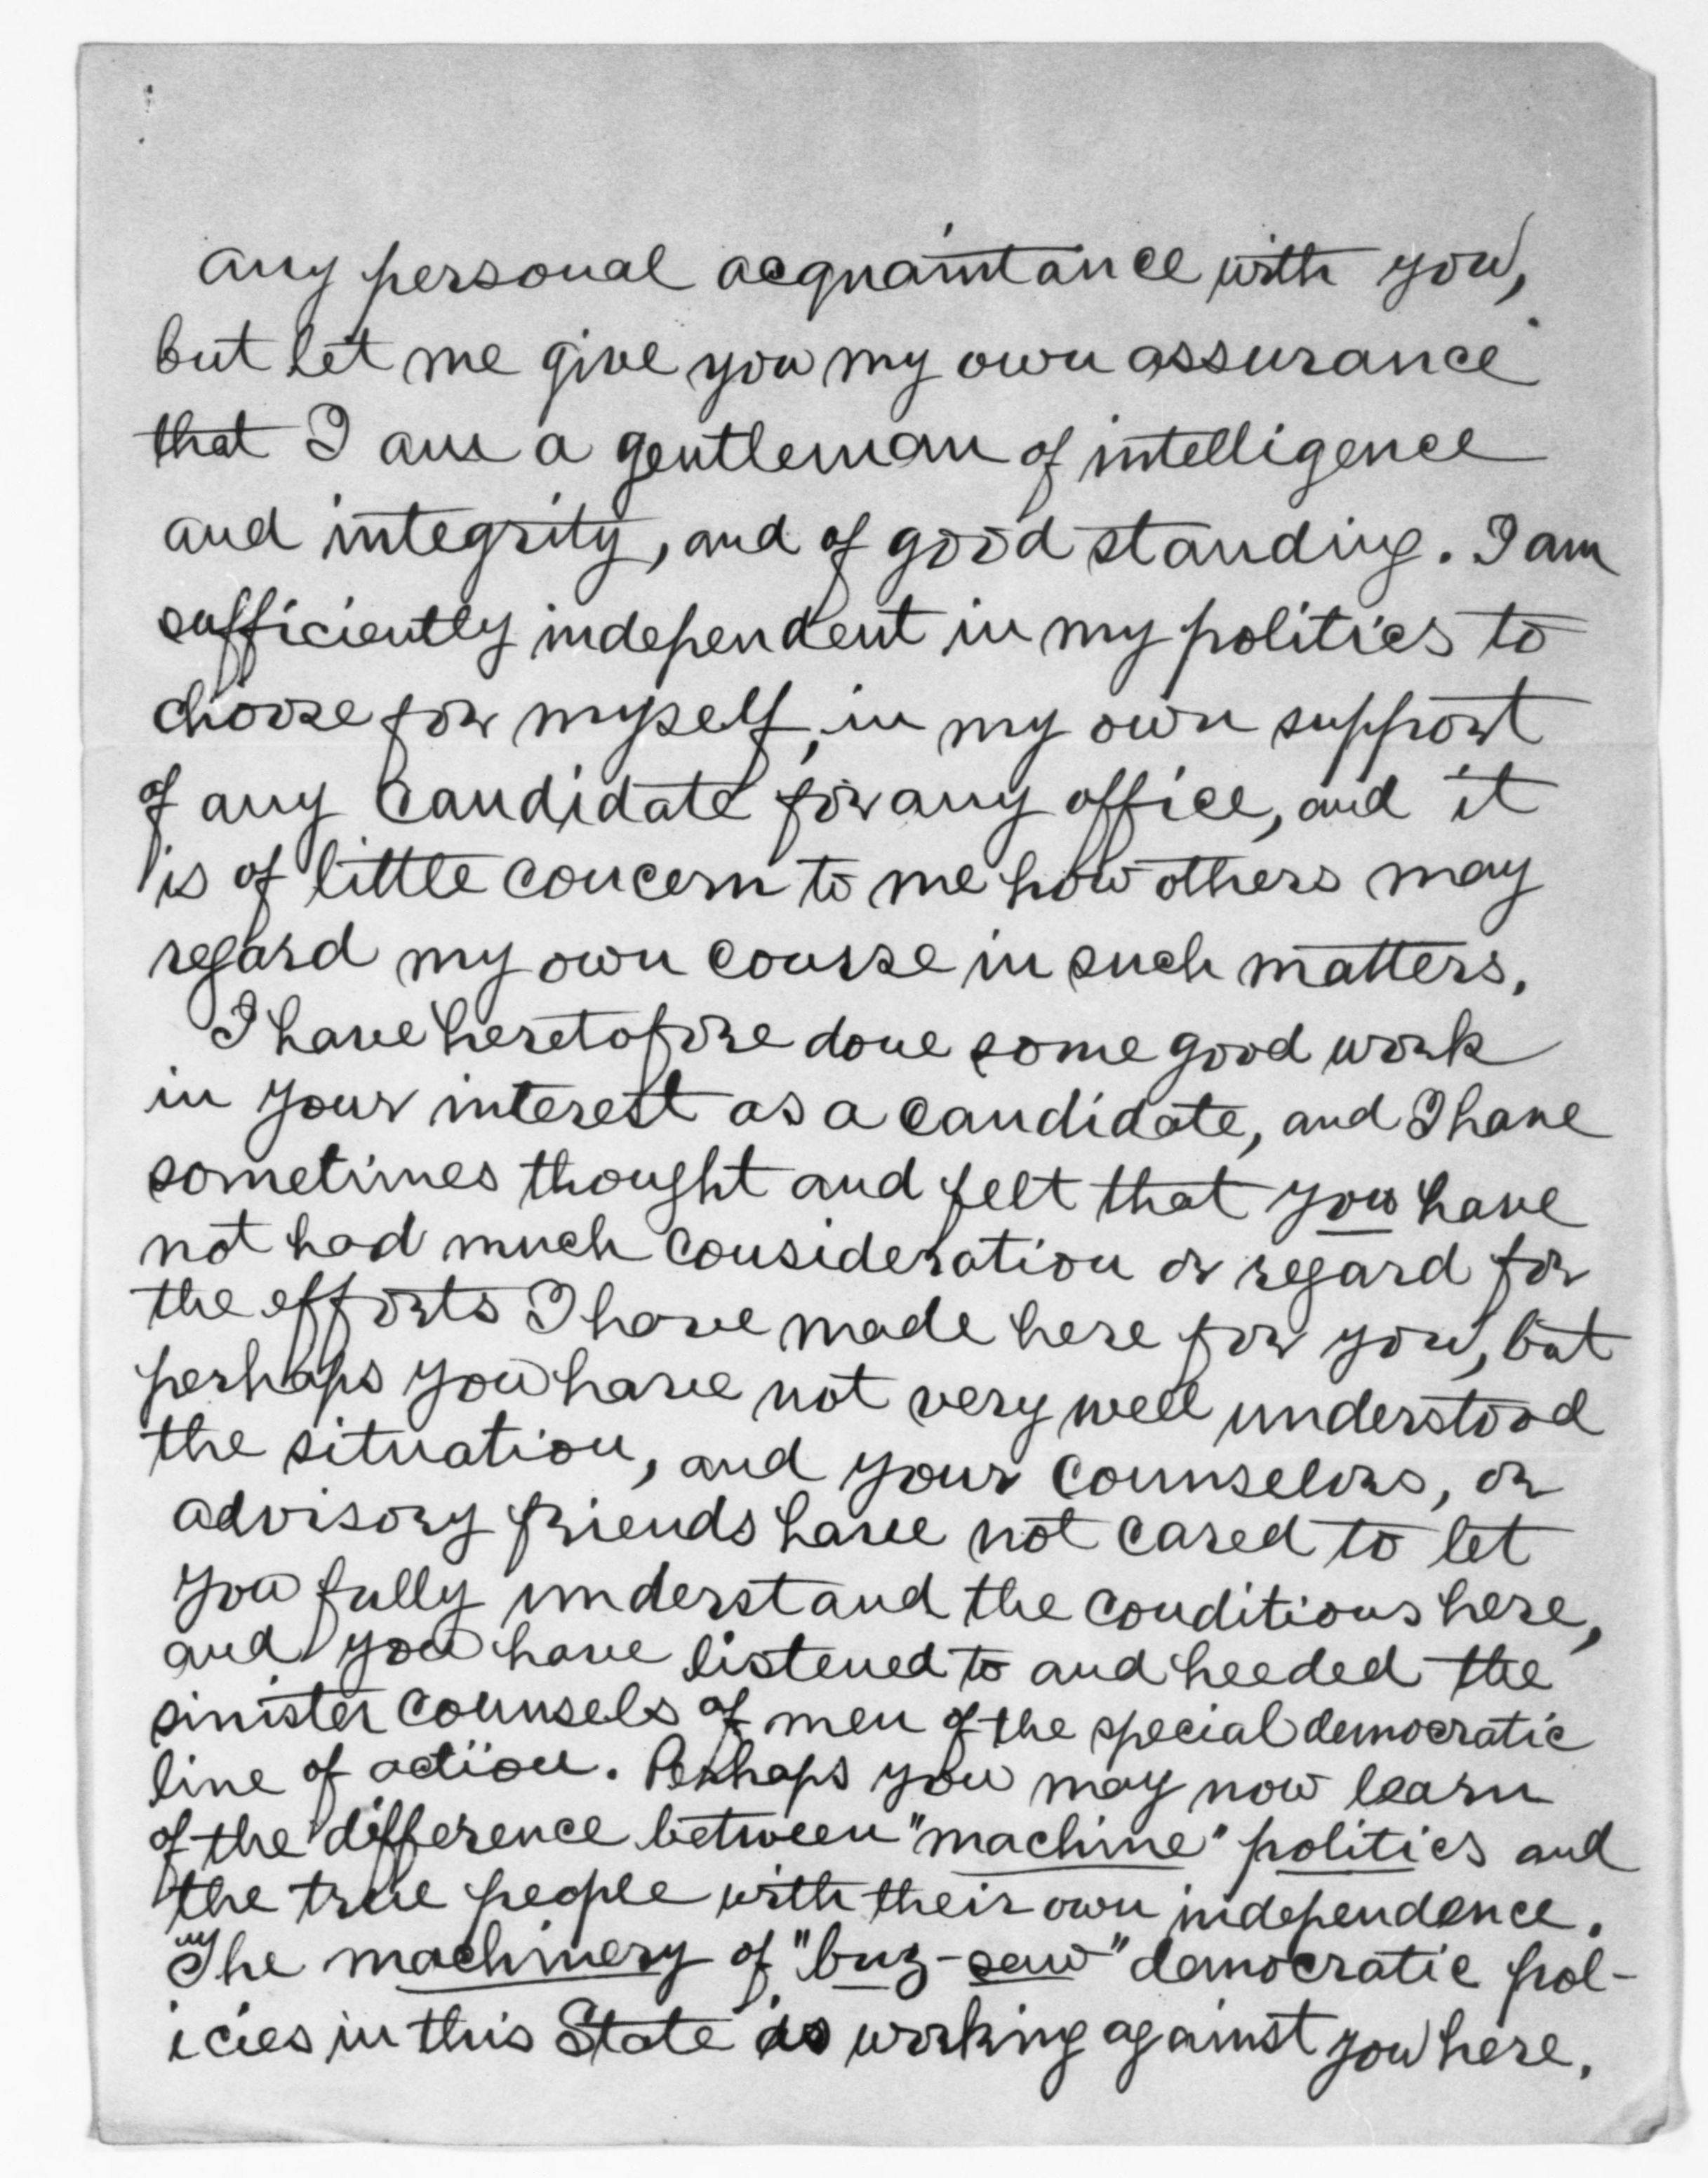 any personal acquaintance with you,
but let me give you my own assurance
that I am a gentleman of intelligence
and integrity, and of good standing. I am
sufficiently independent in my politics to
choose for myself, in my own support
of any candidate for any office, and it
is of little concern to me how others may
regard my own course in such matters.
I have heretofore done some good work
in your interest as a candidate, and I have
sometimes thought and felt that you have
not had much consideration or regard for
the efforts I have made here for you, but
perhaps you have not very well understood
the situation, and your counselors, or
advisory friends have not cared to let
you fully understand the conditions here,
and you have listened to and heeded the
sinister counsels of men of the special democratic
line of action. Perhaps you may now learn
of the difference between "machine" politics and
the true people with their own independence.
The machinery of "buz-saw" democratic pol-
icies in this State is working against you here.